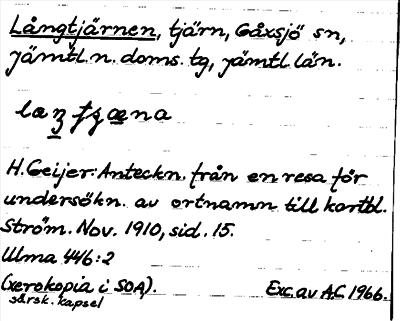 Långtjärnen, tjärn, Gåxsjö sn,
Jämtl. n. doms. tg, Jämtl. län.
H. Geijer: Anteckn. från en resa för
undersökn. av ortnamn till kartbl.
Ström. Nov. 1910, sid. 15.
Ulma 446:2
(xerokopia i SOA). Exc. av A.C. 1966.
särsk. kapsel